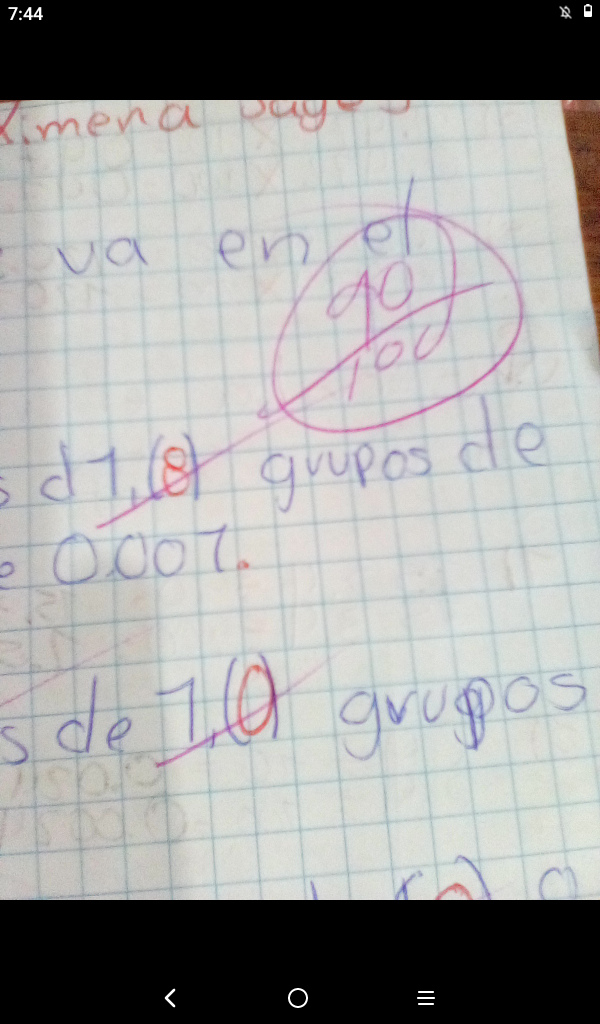 7:44
Ximena
va en el
90
100
s d 1,(8) grupos de
e 0.007.
s de 1,(0) grupos